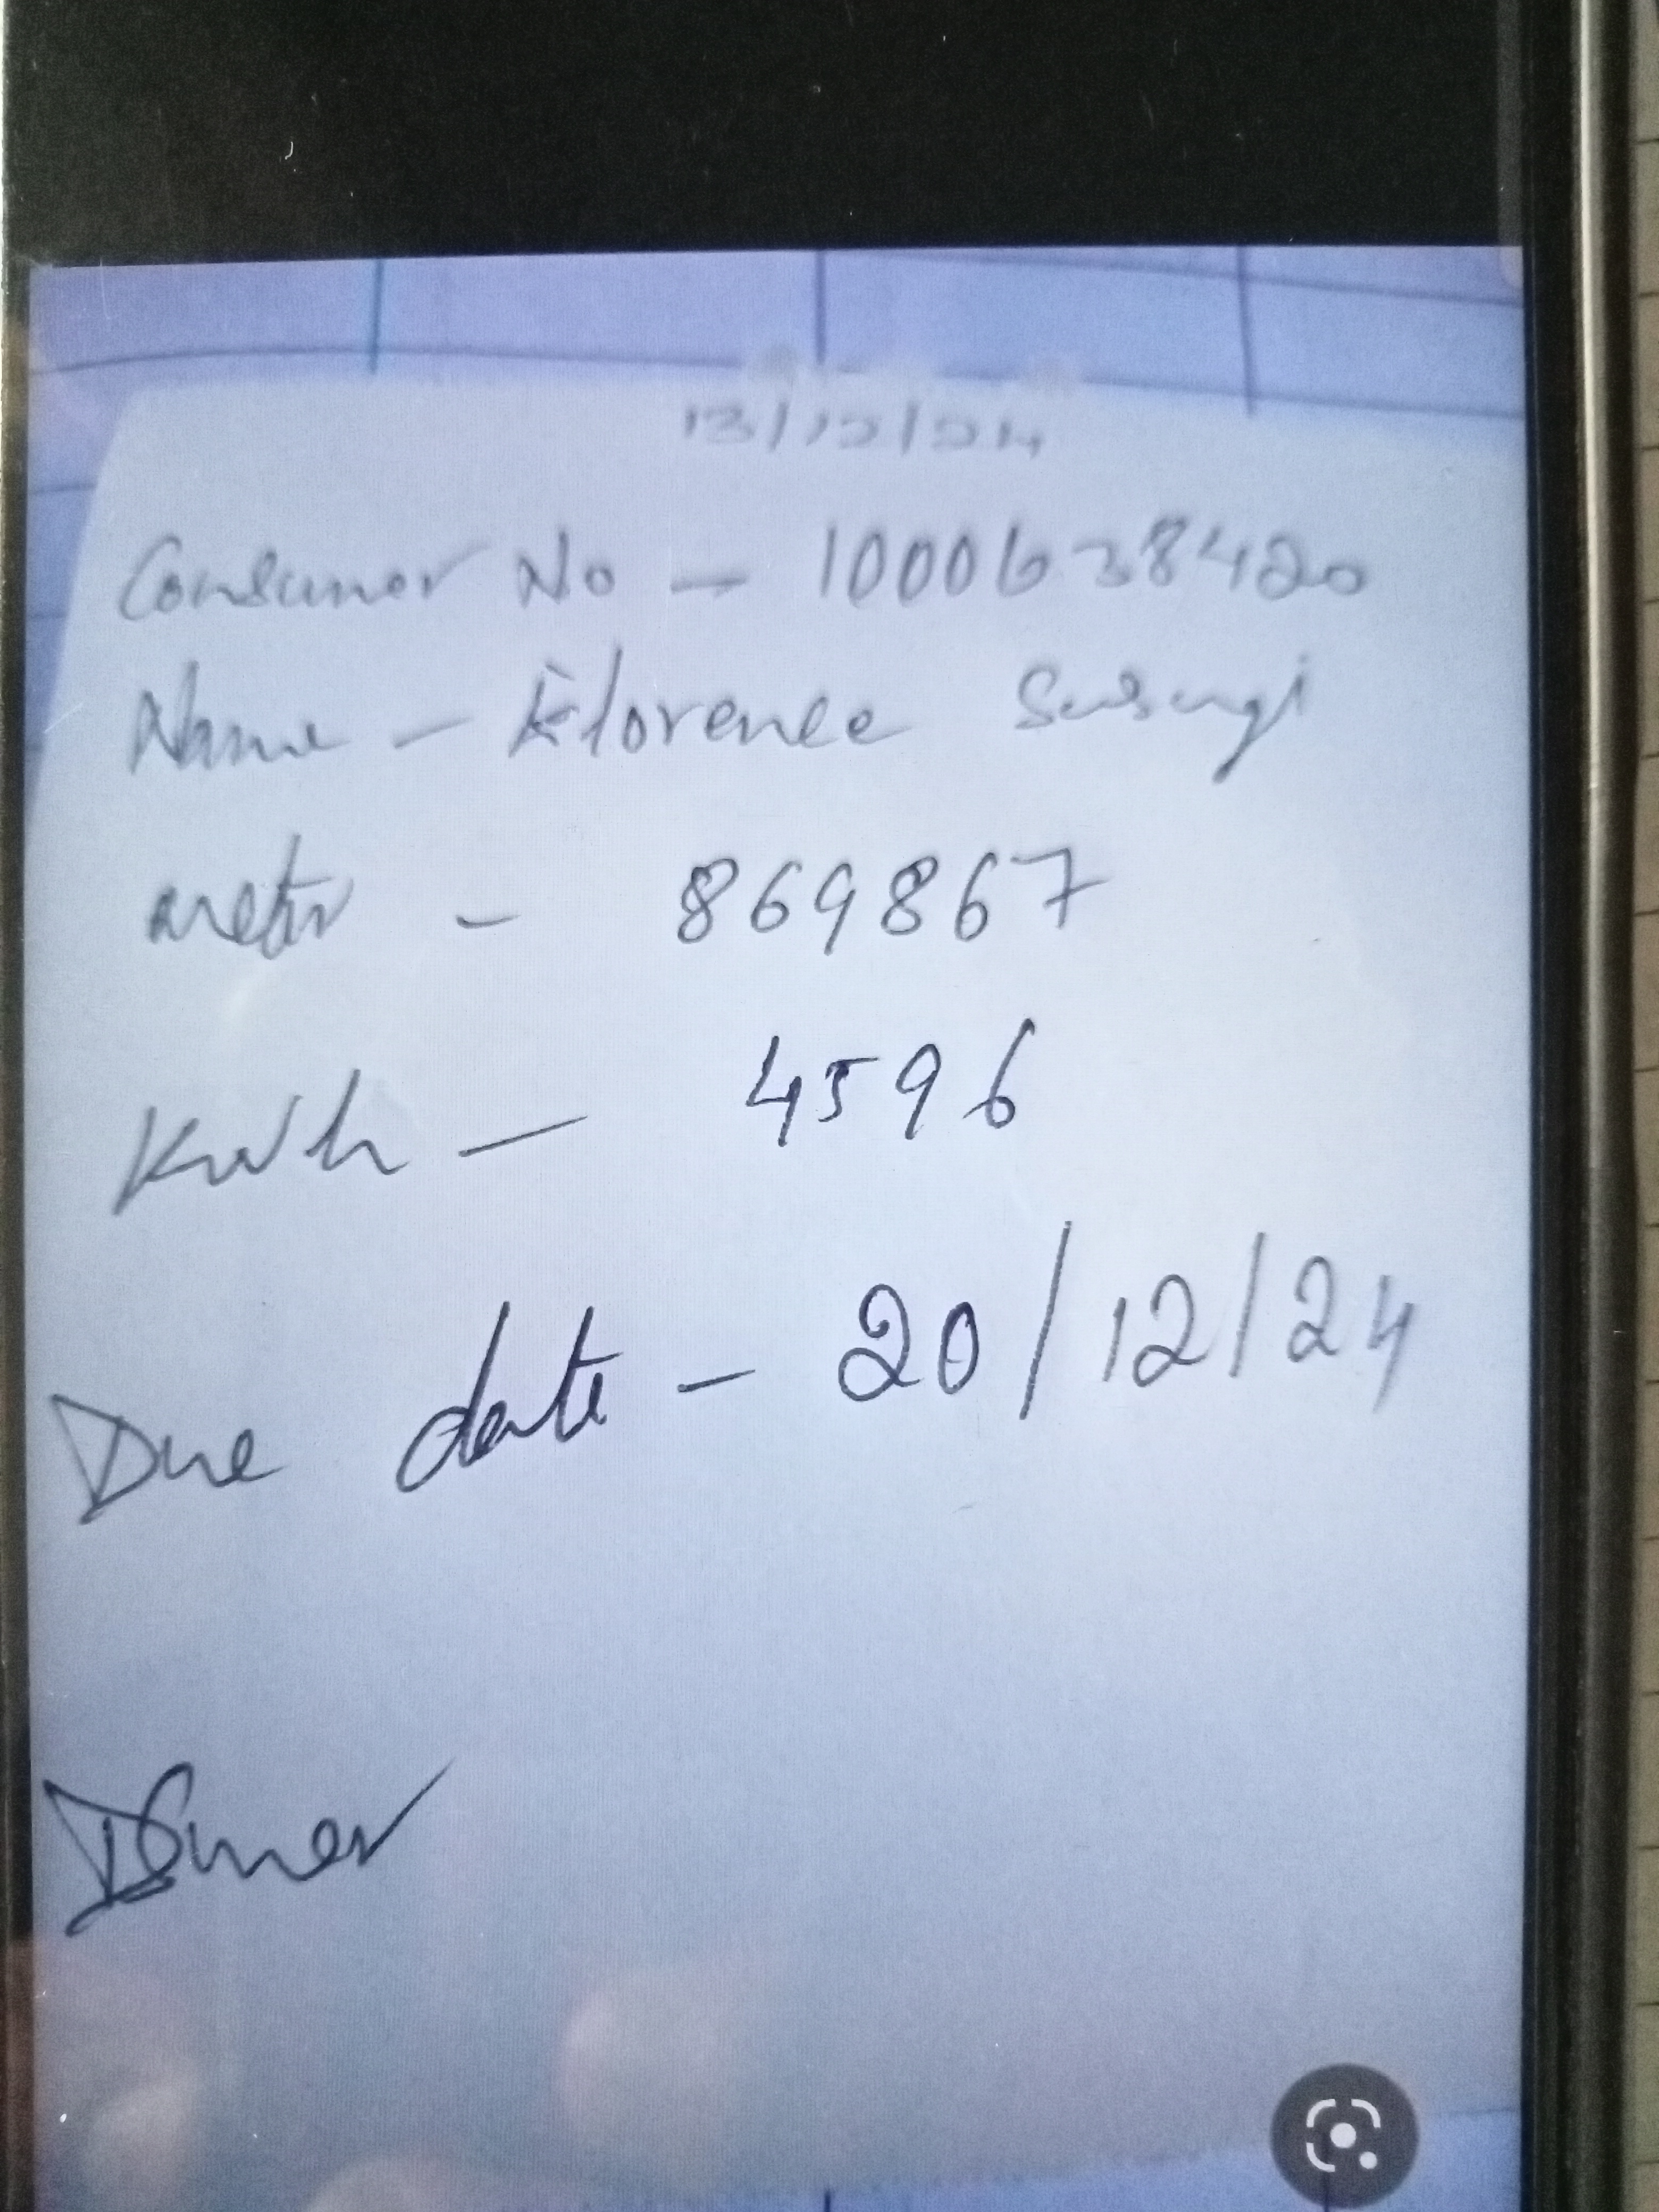 13/12/24
Consumer No - 1000638420
Name - Florence
meter - 869867
Kwh - 4596
Due date - 20/12/24